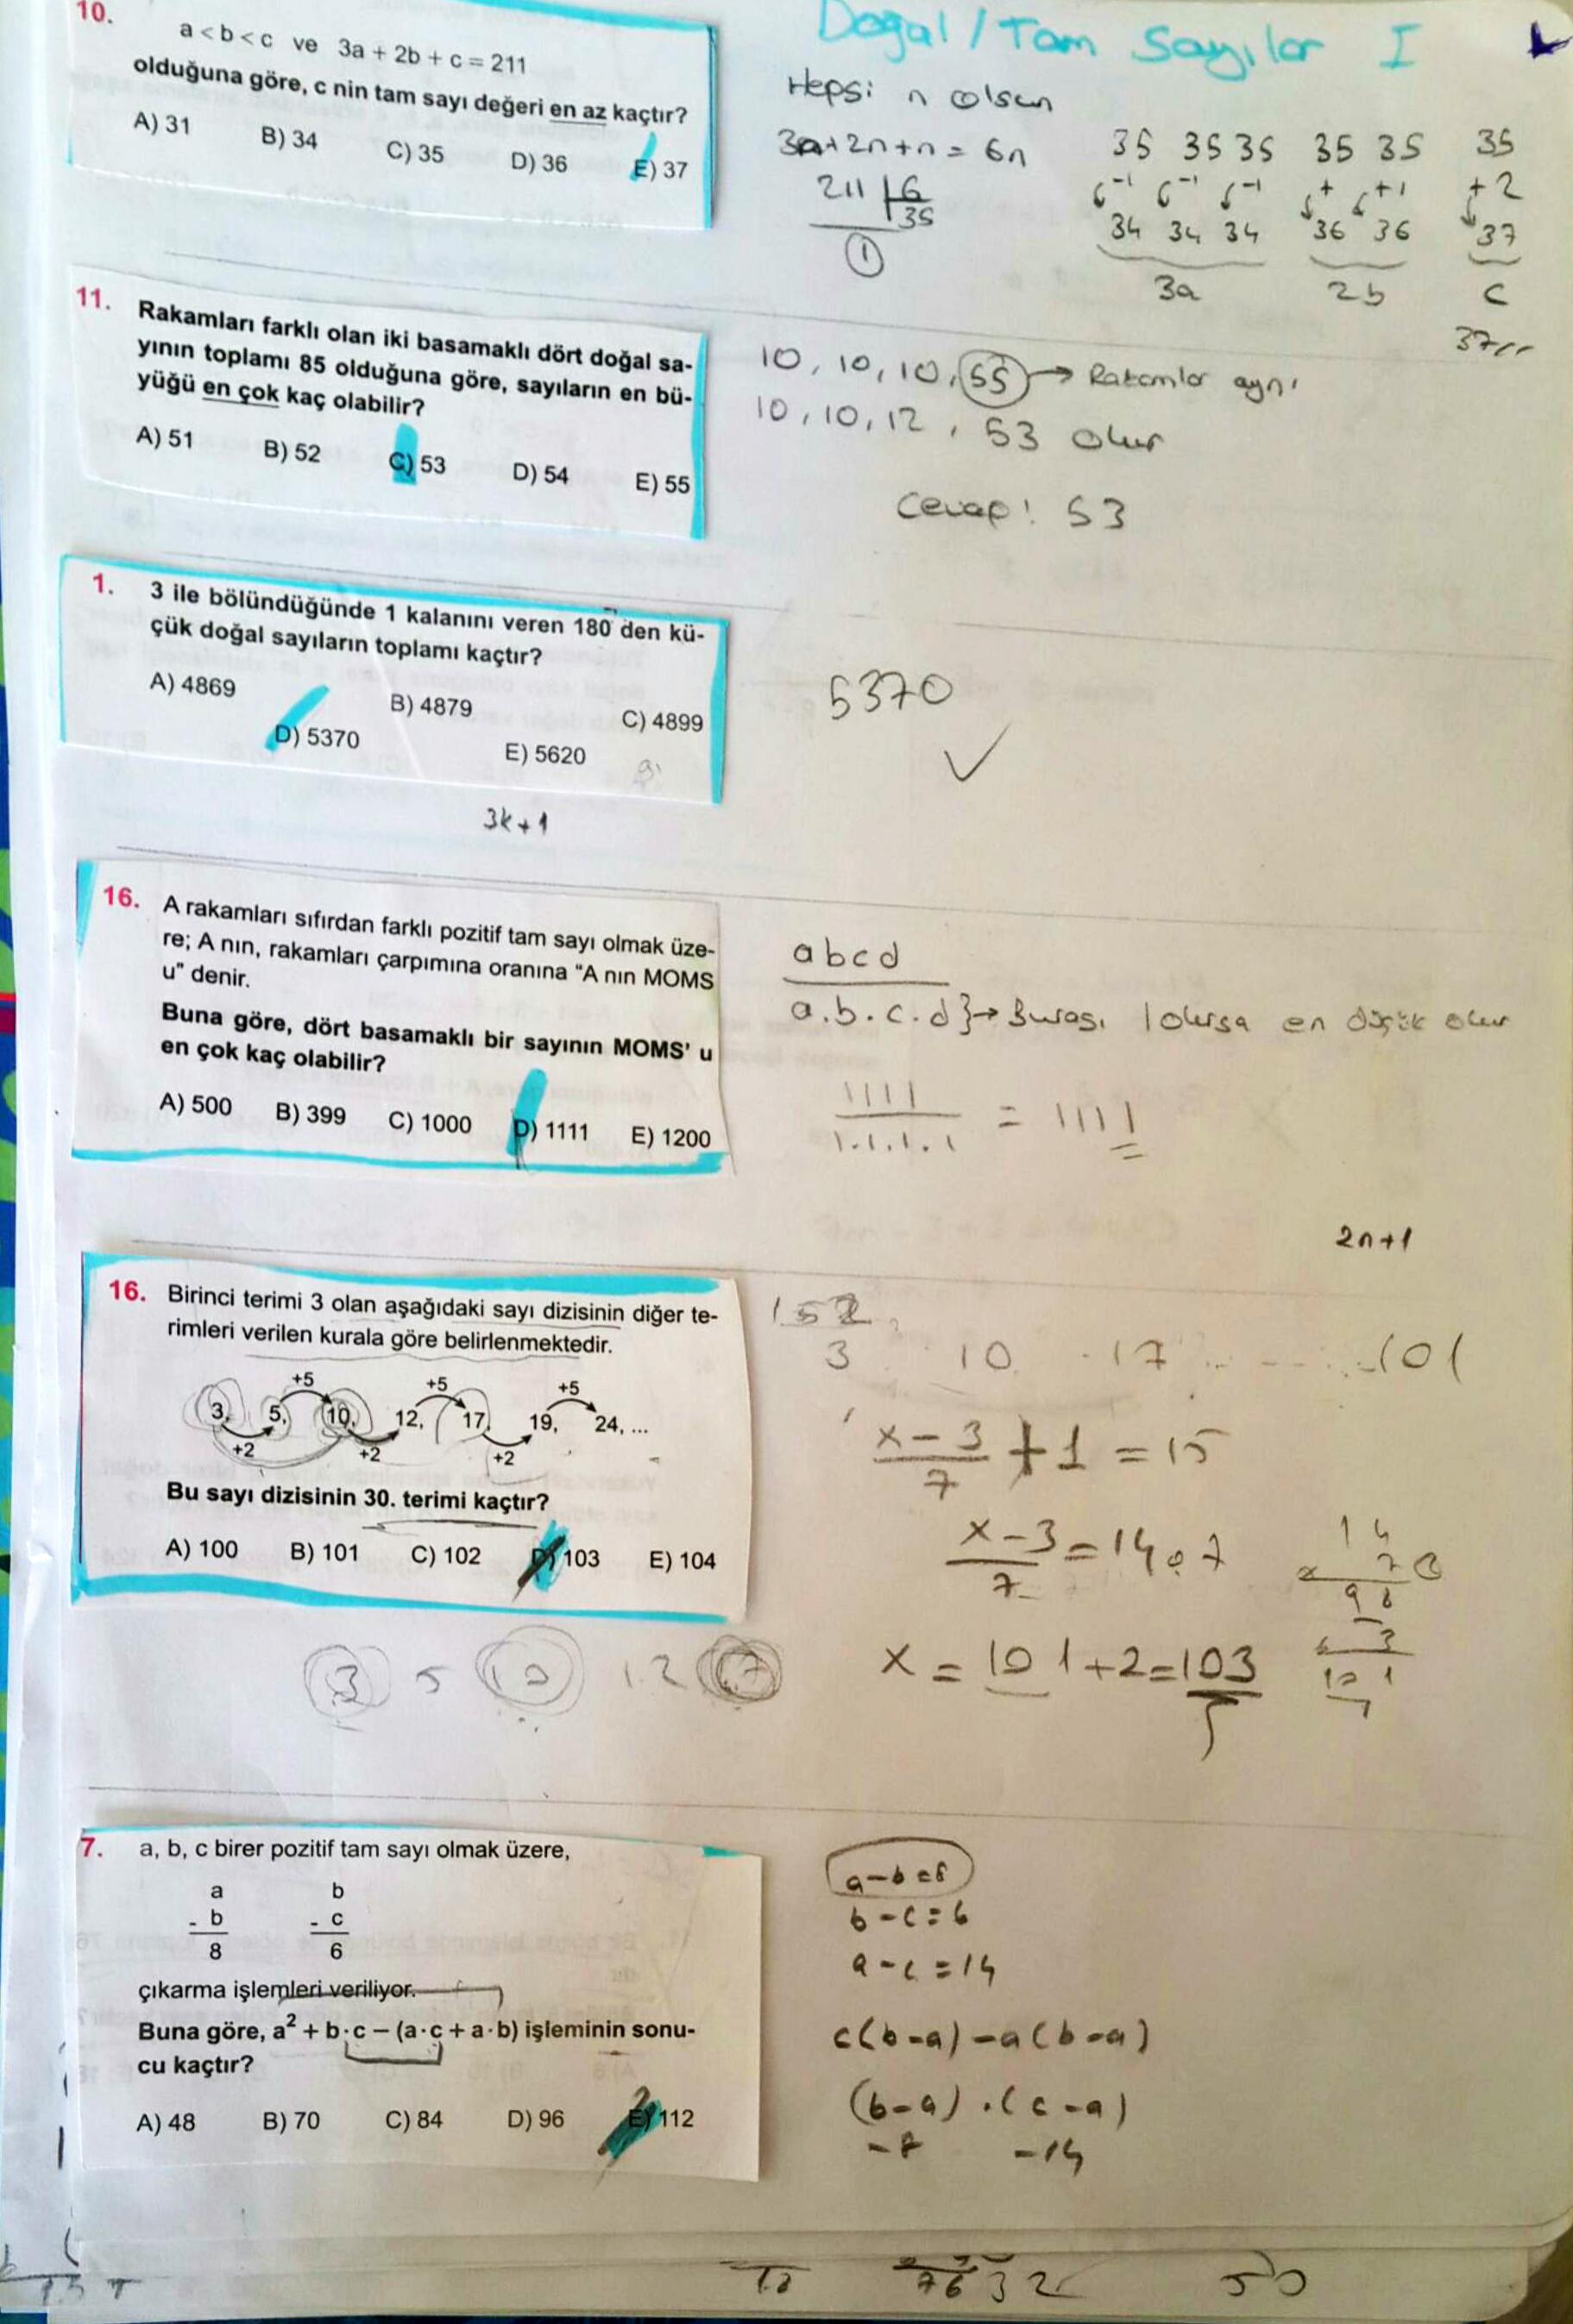 Doğal / Tam Sayılar I
10.
a < b < c ve 3a + 2b + c = 211
olduğuna göre, c nin tam sayı değeri en az kaçtır?
A) 31 B) 34 C) 35 D) 36 E) 37
Hepsi n olsun
3n+2n+n = 6n
211 6
35
1
35 35 35 35 35 35
-1 -1 -1 + +1 +2
34 34 34 36 36 37
3a 2b c
37
11. Rakamları farklı olan iki basamaklı dört doğal sa-
yının toplamı 85 olduğuna göre, sayıların en bü-
yüğü en çok kaç olabilir?
A) 51 B) 52 C) 53 D) 54 E) 55
10, 10, 10, 55 → Rakamlar aynı
10, 10, 12, 53 olur
Cevap: 53
1. 3 ile bölündüğünde 1 kalanını veren 180' den kü-
çük doğal sayıların toplamı kaçtır?
A) 4869 B) 4879 C) 4899
D) 5370 E) 5620
3k+1
5370
16. A rakamları sıfırdan farklı pozitif tam sayı olmak üze-
re; A nın, rakamları çarpımına oranına "A nın MOMS
u" denir.
Buna göre, dört basamaklı bir sayının MOMS' u
en çok kaç olabilir?
A) 500 B) 399 C) 1000 D) 1111 E) 1200
abcd
a.b.c.d}→ Burası 1 olursa en düşük olur
1111
1.1.1.1 = 1111
2n+1
16. Birinci terimi 3 olan aşağıdaki sayı dizisinin diğer te-
rimleri verilen kurala göre belirlenmektedir.
+5 +5 +5
3, 5, 10, 12, 17, 19, 24, ...
+2 +2 +2
Bu sayı dizisinin 30. terimi kaçtır?
A) 100 B) 101 C) 102 D) 103 E) 104
3 5 10 12 17
3 10 17 101
x-3
7 + 1 = 15
x-3
7 = 14.7
x = 101+2=103
14
x 7
98
+ 3
101
7. a, b, c birer pozitif tam sayı olmak üzere,
a b
- b - c
8 6
çıkarma işlemleri veriliyor.
Buna göre, a² + b·c – (a·c + a·b) işleminin sonu-
cu kaçtır?
A) 48 B) 70 C) 84 D) 96 E) 112
a-b=8
b-c=6
a-c=14
c(b-a)-a(b-a)
(b-a).(c-a)
-8 -14
7632
50